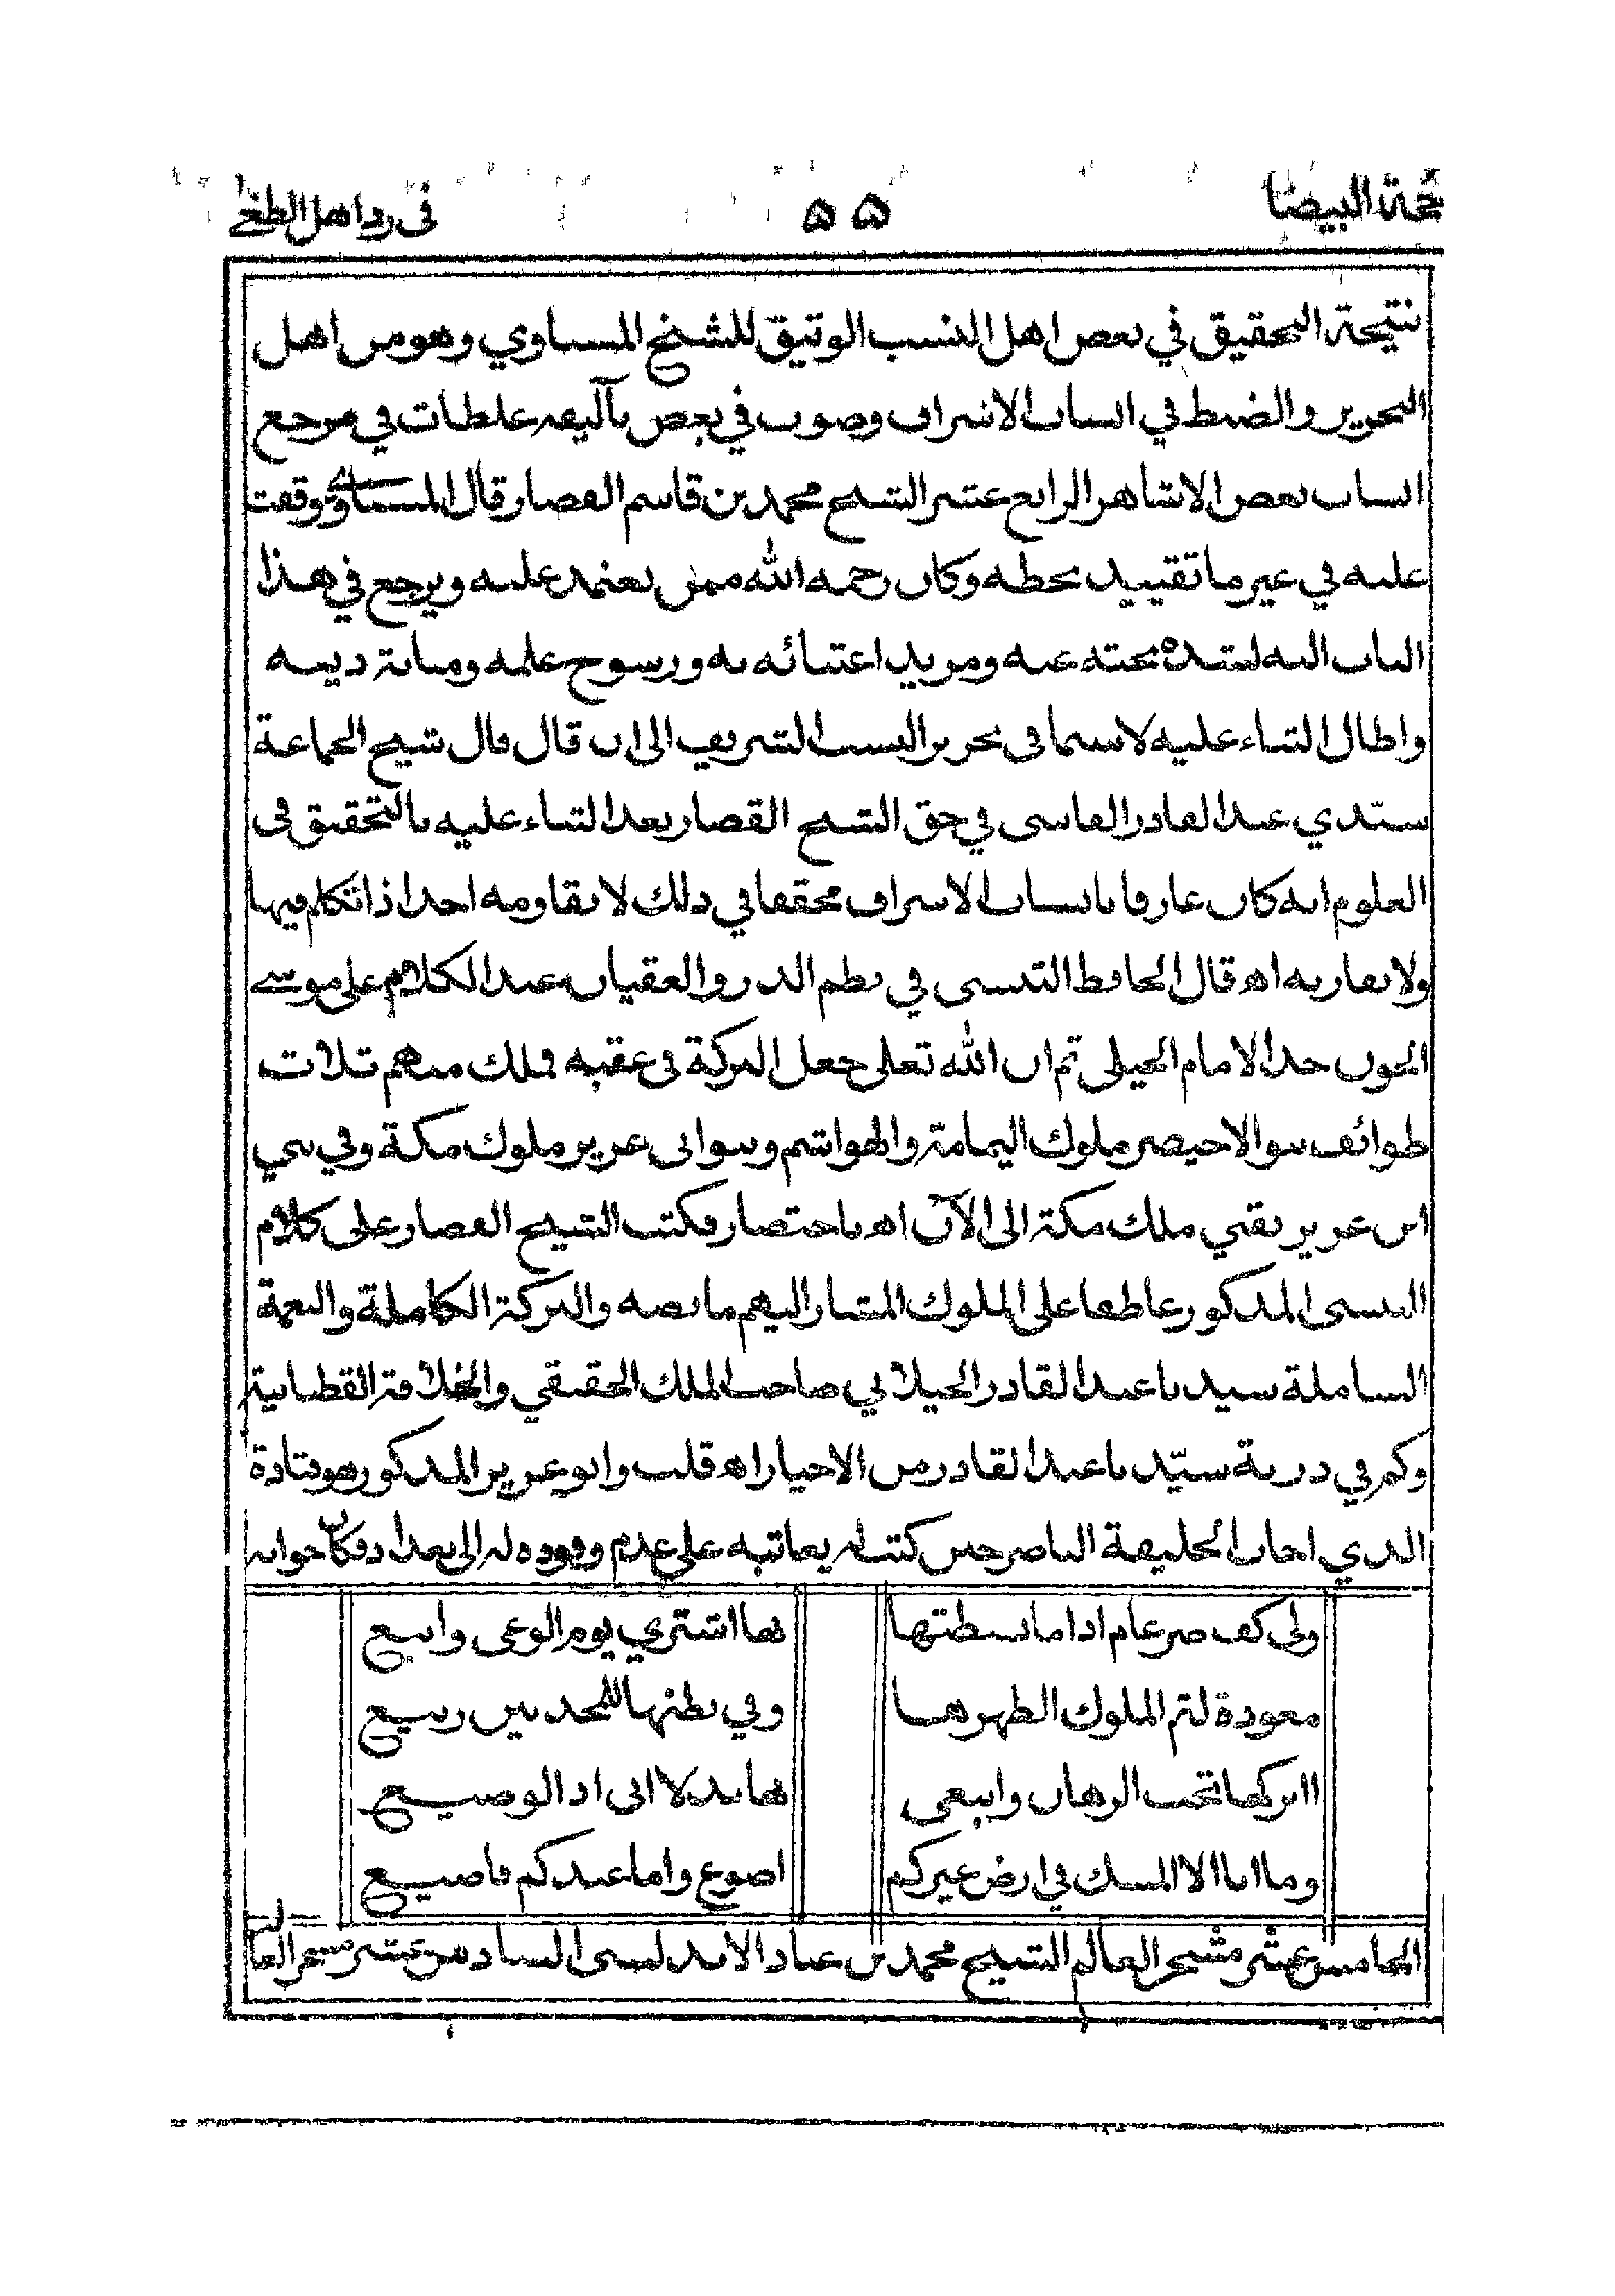 حجة البيضا ۵۵ في رد اهل الطغى
نتيجة التحقيق في بعض اهل النسب الوثيق للشيخ المسناوي وهو من اهل
التحرير والضبط في انساب الاشراف وصوب في بعض تآليفه غلطات في مرجع
انساب بعض الاشاهر الرابع عشر الشيخ محمد بن قاسم القصار قال المسناوي وقفت
عليه في غير ما تقييد بخطه وكان رحمه الله ممن يعتمد عليه ويرجع في هذا
الباب اليه لشدة بحثه عنه ومزيد اعتنائه به ورسوخ علمه ومتانة دينه
واطال الثناء عليه لاسيما في تحرير النسب الشريف الى ان قال قال شيخ الجماعة
سيّدي عبد القادر الفاسى في حق الشيخ القصار بعد الثناء عليه بالتحقيق في
العلوم انه كان عارفا بانساب الاشراف محققا في ذلك لا يقاومه احد اذا تكلم فيها
ولا يقاربه اه قال الحافظ التنسى في نظم الدر والعقيان عند الكلام على موسى
الجون جد الامام الجيلى ثم ان الله تعلى جعل البركة فى عقبه فملك منهم ثلاث
طوائف بنو الاخيضر ملوك اليمامة والهواشم وبنو ابى عزيز ملوك مكة وفي بني
ابى عزيز بقي ملك مكة الى الآن اه باختصار فكتب الشيخ القصار على كلام
التنسى المذكور عاطفا على الملوك المشار اليهم ما نصه والبركة الكاملة والنعمة
الشاملة سيدنا عبد القادر الجيلاني صاحب الملك الحقيقي والخلافة القطبانية
وكم في ذرية سيّدنا عبد القادر من الاخيار اه قلت وابو عزيز المذكور هو قتادة
الذي اجاب الخليفة الناصر حين كتب له يعاتبه على عدم وفوده له الى بغداد فكان جوابه
ولى كف ضرغام اذا ما بسطتها بها اشتري يوم الوغى وابيع
معودة لثم الملوك لظهرها وفي بطنها للمجدبين ربيع
أاتركها تحت الرهان وابتغى بها بدلا انى اذا لوضيع
وما انا الا المسك في ارض غيركم اضوع واما عندكم فاضيع
الخامس عشر مشجر العالم الشيخ محمد بن عباد الاندلسى السادس عشر مشجر العا